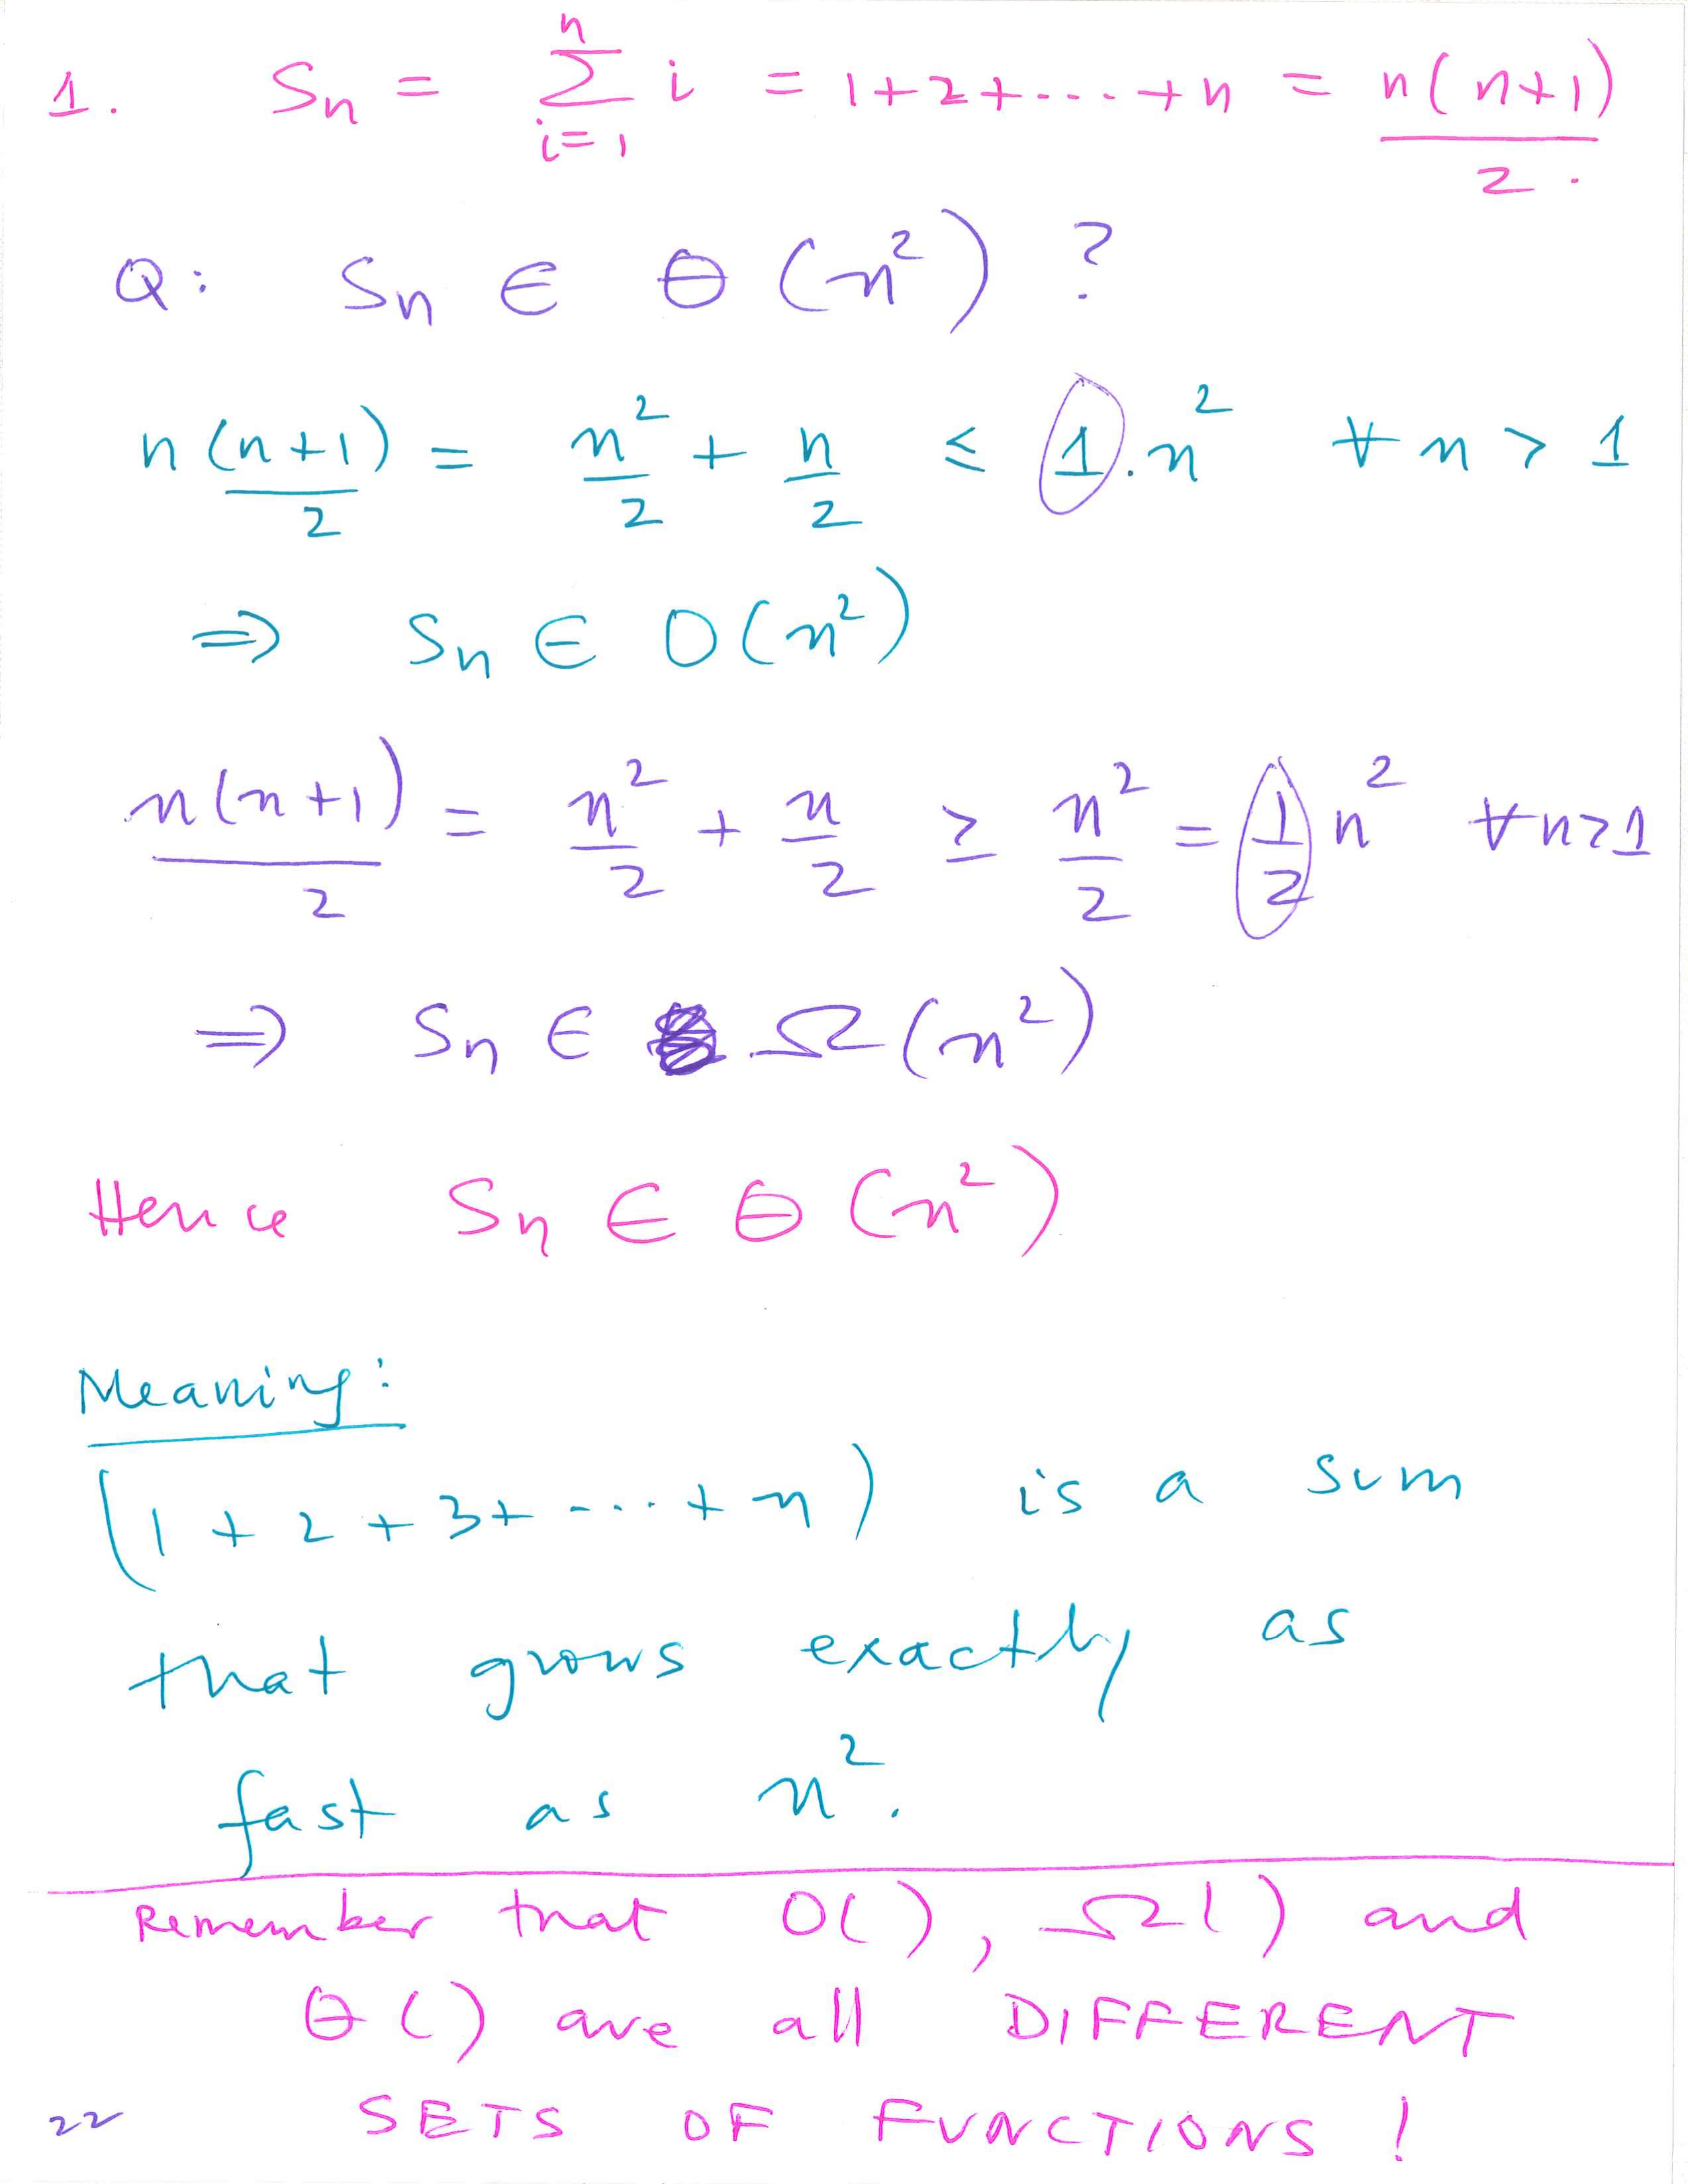 1. Sn = n∑i=1 i = 1+2+....+n = n(n+1)/2.
Q: Sn ∈ Θ(n²) ?
n(n+1)/2 = n²/2 + n/2 ≤ 1.n² ∀ n > 1
⇒ Sn ∈ O(n²)
n(n+1)/2 = n²/2 + n/2 ≥ n²/2 = 1/2 n² ∀ n ≥ 1
⇒ Sn ∈ Ω(n²)
Hence Sn ∈ Θ(n²)
Meaning:
(1 + 2 + 3 + .... + n) is a sum
that grows exactly as
fast as n².
Remember that O(), Ω() and
Θ() are all DIFFERENT
22 SETS OF FUNCTIONS !